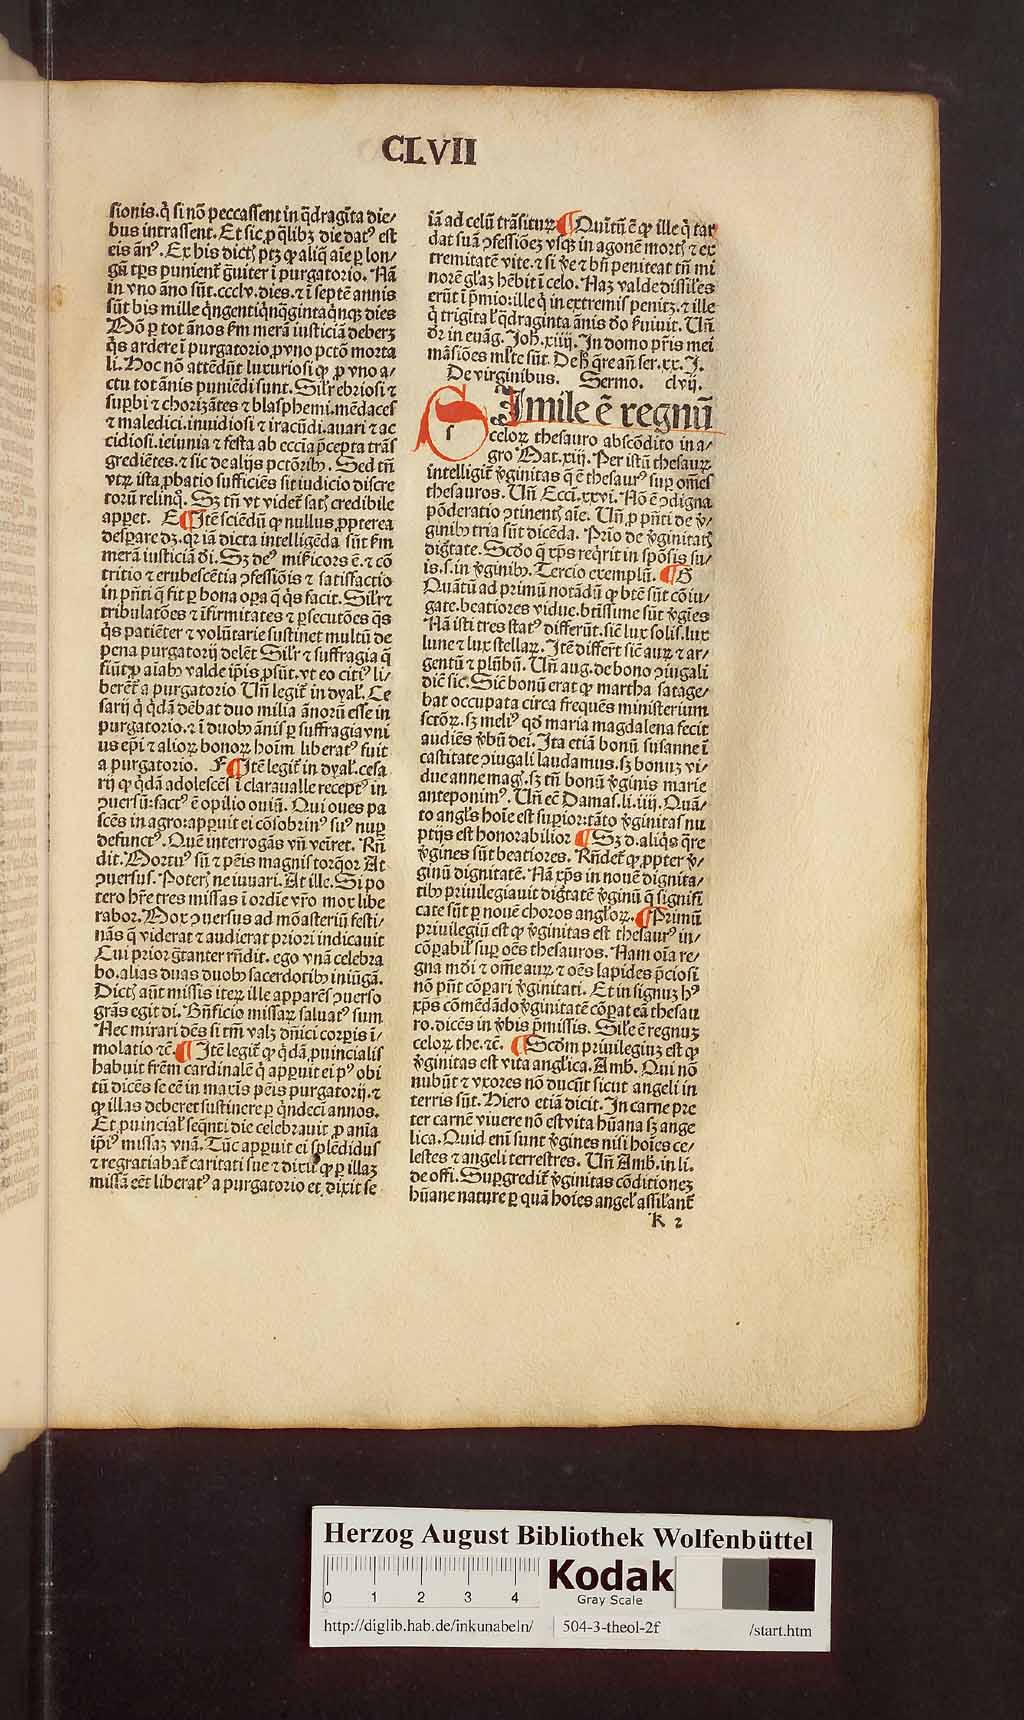 CLVII
sionis. q̃ si nō peccassent in q̃dragīta die/
bus intrassent. Et sic ꝓ q̃libꝫ die datꝰ est
eis ānꝰ. Ex his dictꝭ ptꝫ ꝙ aliq̃ aīe ꝑ lon/
gū tꝑs punient̃ g̃uiter ī purgatorio. Nā
in vno āno sūt. ccclv. dies. ⁊ ī septē annis
sūt bis mille q̃ngentiqnq̃gintaq̃nqꝫ dies
Nō ꝑ tot ānos ẜm merā iusticiā deberꝫ
q̃s ardere ī purgatorio ꝓ vno pctō morta
li. Hoc nō attēdūt luxuriosi ꝙ ꝓ vno a/
ctu tot ānis puniēdi sunt. Silr̃ ebriosi ⁊
suꝑbi ⁊ chorizātes ⁊ blasphemi. mēdaces
⁊ maledici. inuidiosi ⁊ iracūdi. auari ⁊ ac
cidiosi. ieiunia ⁊ festa ab ecc̄ia p̄cepta trās
grediētes. ⁊ sic de alijs pctōribꝰ. Sed tñ
vtꝝ ista ꝓbatio sufficiēs sit iudicio discre
torū relinq̃. Sꝫ tñ vt videt̃ satꝭ credibile
apꝑet. E ¶ Itē sciēdū ꝙ nullus ꝓpterea
desꝑare dꝫ. qꝛ iā dicta intelligēda sūt ẜm
merā iusticiā dī. Sꝫ deꝰ misicors ē. ⁊ cō
tritio ⁊ erubescētia ꝯfessiōis ⁊ satisfactio
in pñti q̃ fit ꝑ bona oꝑa q̃ q̃s facit. Silr̃ ⁊
tribulatōes ⁊ īfirmitates ⁊ ꝑsecutōes q̃s
q̃s patiēter ⁊ volūtarie sustinet multū de
pena purgatorij delēt Silr̃ ⁊ suffragia q̃
fiūt ꝓ aīabꝰ valde ip̄is ꝓsūt. vt eo citiꝰ li/
berēt̃ a purgatorio Uñ legit̃ in dyal̃. Ce
sarij q̃ q̃dā dēbat duo milia ānorū esse in
purgatorio. ⁊ ī duobꝰ ānis ꝑ suffragia vni
us ep̄i ⁊ alioꝝ bonoꝝ hoīm liberatꝰ fuit
a purgatorio. F ¶ Itē legit̃ in dyal̃. cesa
rij ꝙ q̃dā adolescēs ī clarauaLle receptꝰ in
ꝯuersū: factꝰ ē opilio ouiū. Qui oues pa
scēs in agro: apꝑuit ei cōsobrinꝰ suꝰ nuꝑ
defunctꝰ. Quē interrogās vñ veīret. Rñ
dit. Mortuꝰ sū ⁊ pēis magnis torq̃or At
ꝯuersus. Potertꝭ ne iuuari. At ille. Si po
tero hr̃e tres missas ī ordīe vr̃o mox libe
rabor. Mox ꝯuersus ad mōasteriū festi/
nās q̃ viderat ⁊ audierat priori indicauit
Cui prior g̃tanter rñdit. ego vnā celebra
bo. alias duas duobꝰ sacerdotibꝰ iniūgā.
Dictꝭ aūt missis iteꝝ ille apparēs ꝯuerso
grās egit dī. Bñficio missaꝝ saluatꝰ sum
Nec mirari dēs si tm̄ valꝫ dñici corꝑis ī/
molatio ⁊c̄. ¶ Itē legit̃ ꝙ q̃dā ꝓuincialis
habuit frēm cardinalē q̃ apꝑuit ei pꝰ obi
tū dicēs se eē in maxīs pēis purgatorij. ⁊
ꝙ illas deberet sustinere ꝑ q̃ndecī annos.
Et ꝓuincial̃ seq̃nti die celebrauit ꝓ anīa
ip̄iꝰ missaꝫ vnā. Tūc apꝑuit ei splēdidus
⁊ regratiabat̃ caritati sue ⁊ dixit ꝙ ꝑ illaꝫ
missā eēt liberatꝰ a purgatorio et dixit se
iā ad celū trāsiturꝫ ¶ Quītū ē ꝙ ille q̃ tar
dat suā ꝯfessiōeꝫ vsqꝫ in agonē mortꝭ ⁊ ex
tremitatē vite. ⁊ si ṽe ⁊ bñ peniteat tñ mi
norē gl̃aꝫ hēbit ī celo. Naꝫ valde dissil̃es
erūt ī p̄mio: ille q̃ in extremis penitꝫ. ⁊ ille
q̃ trigita l̃ q̃draginta ānis dō ẜuiuit. Uñ
dr̃ in euāg. Joh̄. xiiij. In domo pr̄is mei
māsiōes ml̃te sūt. De h̄ q̃re añ ser. xx. J.
De virginibus. Sermo. clvij.
SImile ē regnū
celoꝝ thesauro abscōdito in a/
gro Mat. xiij. Per istū thesauꝝ
intelligit̃ ṽginitas q̃ ē thesaurꝰ suꝑ om̄es
thesauros. Uñ Ecci. xxvi. Nō ē ꝯdigna
pōderatio ꝯtinentꝭ aīe. Uñ ꝓ pñti de ṽ/
ginibꝰ tria sūt dicēda. Prīo de ṽginitatꝭ
dig̃tate. Scd̄o q̃ xp̄s reqrit in spōsis su/
is. s. in ṽginibꝰ. Tercio exemplū. ¶ G
Quātū ad primū notādū ꝙ btē sūt cō iu/
gate. beatiores vidue. btissime sūt ṽgīes
Nā isti tres statꝰ differūt. sic̄ lux solis. lux
lune ⁊ lux stellaꝝ. Itē differt̃ sic̄ auꝝ ⁊ ar/
gentū ⁊ plūbū. Uñ aug. de bono ꝯiugali
dic̄ sic. Sic̄ bonū erat ꝙ martha satage/
bat occupata circa frequēs ministerium
sctōꝝ. sꝫ meliꝰ qd̄ maria magdalena fecit
audiēs ṽbū dei. Ita etiā bonū susanne ī
castitate ꝯiugali laudamus. sꝫ bonuꝫ vi/
due anne mag̃. sꝫ tñ bonū ṽginis marie
anteponimꝰ. Uñ eē Damas. li. iiij. Quā/
to angl̃s hoīe est suꝑior: tāto ṽginitas nu
ptijs est honorabilior ¶ Sꝫ d. aliq̃s q̃re
ṽgines sūt beatiores. Rñdet̃ ꝙ ꝓpter ṽ/
ginū dignitatē. Nā xp̄s in nouē dignita/
tibꝰ priuilegiauit dig̃tate ṽginū q̃ signifi
cate sūt ꝑ nouē choros angl̃oꝝ. ¶ Primū
priuilegiū est ꝙ ṽginitas est thesaurꝰ in/
cōꝑabil̃ suꝑ oēs thesauros. Nam oīa re/
gna mdī ⁊ om̄e auꝝ ⁊ oēs lapides p̄ciosi
nō pñt cōꝑari ṽginitati. Et in signuꝫ hꝰ
xp̄s cōmēdādo ṽginitatē cōꝑat eā thesau
ro. dicēs in ṽbis p̄missis. Sil̃e ē regnuꝫ
celoꝝ the. ⁊c̄. ¶ Scd̄m priuilegiuꝫ est ꝙ
ṽginitas est vita angl̃ica. Amb. Qui nō
nubūt ⁊ vxores nō ducūt sicut angeli in
terris sūt. Hiero etiā dicit. In carne pre
ter carnē viuere nō est vita hūana sꝫ ange
lica. Quid enī sunt ṽgines nisi hoīes ce/
lestes ⁊ angeli terrestres. Uñ Amb. in li.
de offi. Suꝑgredit̃ ṽginitas cōditioneꝫ
hūane nature ꝑ quā hoīes angel̃ assil̃ant̃
k 2
Herzog August Bibliothek Wolfenbüttel
0 1 2 3 4
Kodak
Gray Scale
http://diglib.hab.de/inkunabeln/ 504-3-theol-2f /start.htm